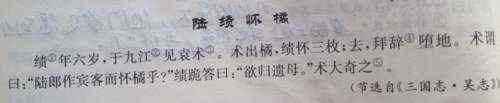 陆绩怀橘
绩①年六岁,于九江②见袁术③。术出橘,绩怀三枚;去,拜辞④堕地。术谓
曰:“陆郎作宾客而怀橘乎?”绩跪答曰:“欲归遗母。”术大奇之⑤。
(节选自《三国志·吴志》)